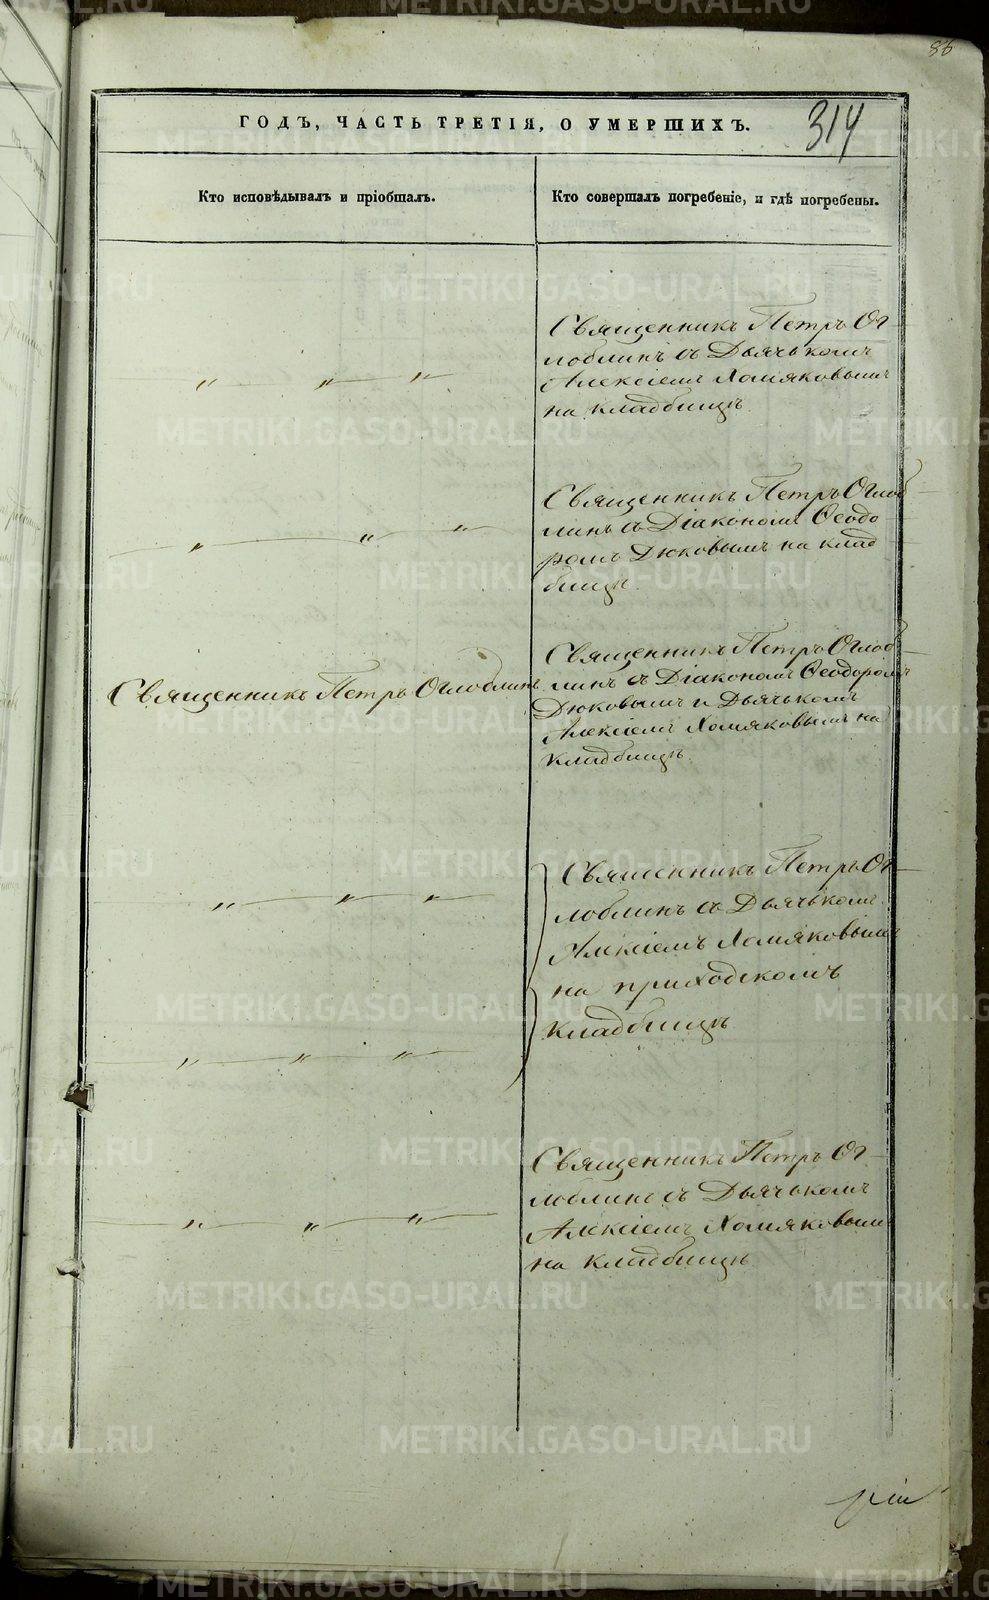 86
ГОДЪ, ЧАСТЬ ТРЕТІЯ, О УМЕРШИХЪ.
314
Кто исповѣдывалъ и пріобщалъ.
Кто совершалъ погребеніе, и гдѣ погребены.
Священникъ Петръ Ог-
лоблинъ съ Дьячькомъ
Алексіемъ Хомяковымъ
на кладбищѣ
" " "
Священникъ Петръ Оглоб-
линъ съ Діакономъ Ѳеодо-
ромъ Дюковымъ на клад
бищѣ.
" " "
Священникъ Петръ Оглоблинъ
Священникъ Петръ Оглоб-
линъ съ Діакономъ Ѳеодоромъ
Дюковымъ и Дьячькомъ
Алексіемъ Хомяковымъ на
кладбищѣ
" " "
Священникъ Петръ Ог-
лоблинъ съ Дьячькомъ
Алексіемъ Хомяковымъ
на приходскомъ
кладбищѣ
" " "
Священникъ Петръ Ог-
лоблинъ съ Дьячькомъ
Алексіемъ Хомяковымъ
на кладбищѣ
" " "
METRIKI.GASO-URAL.RU